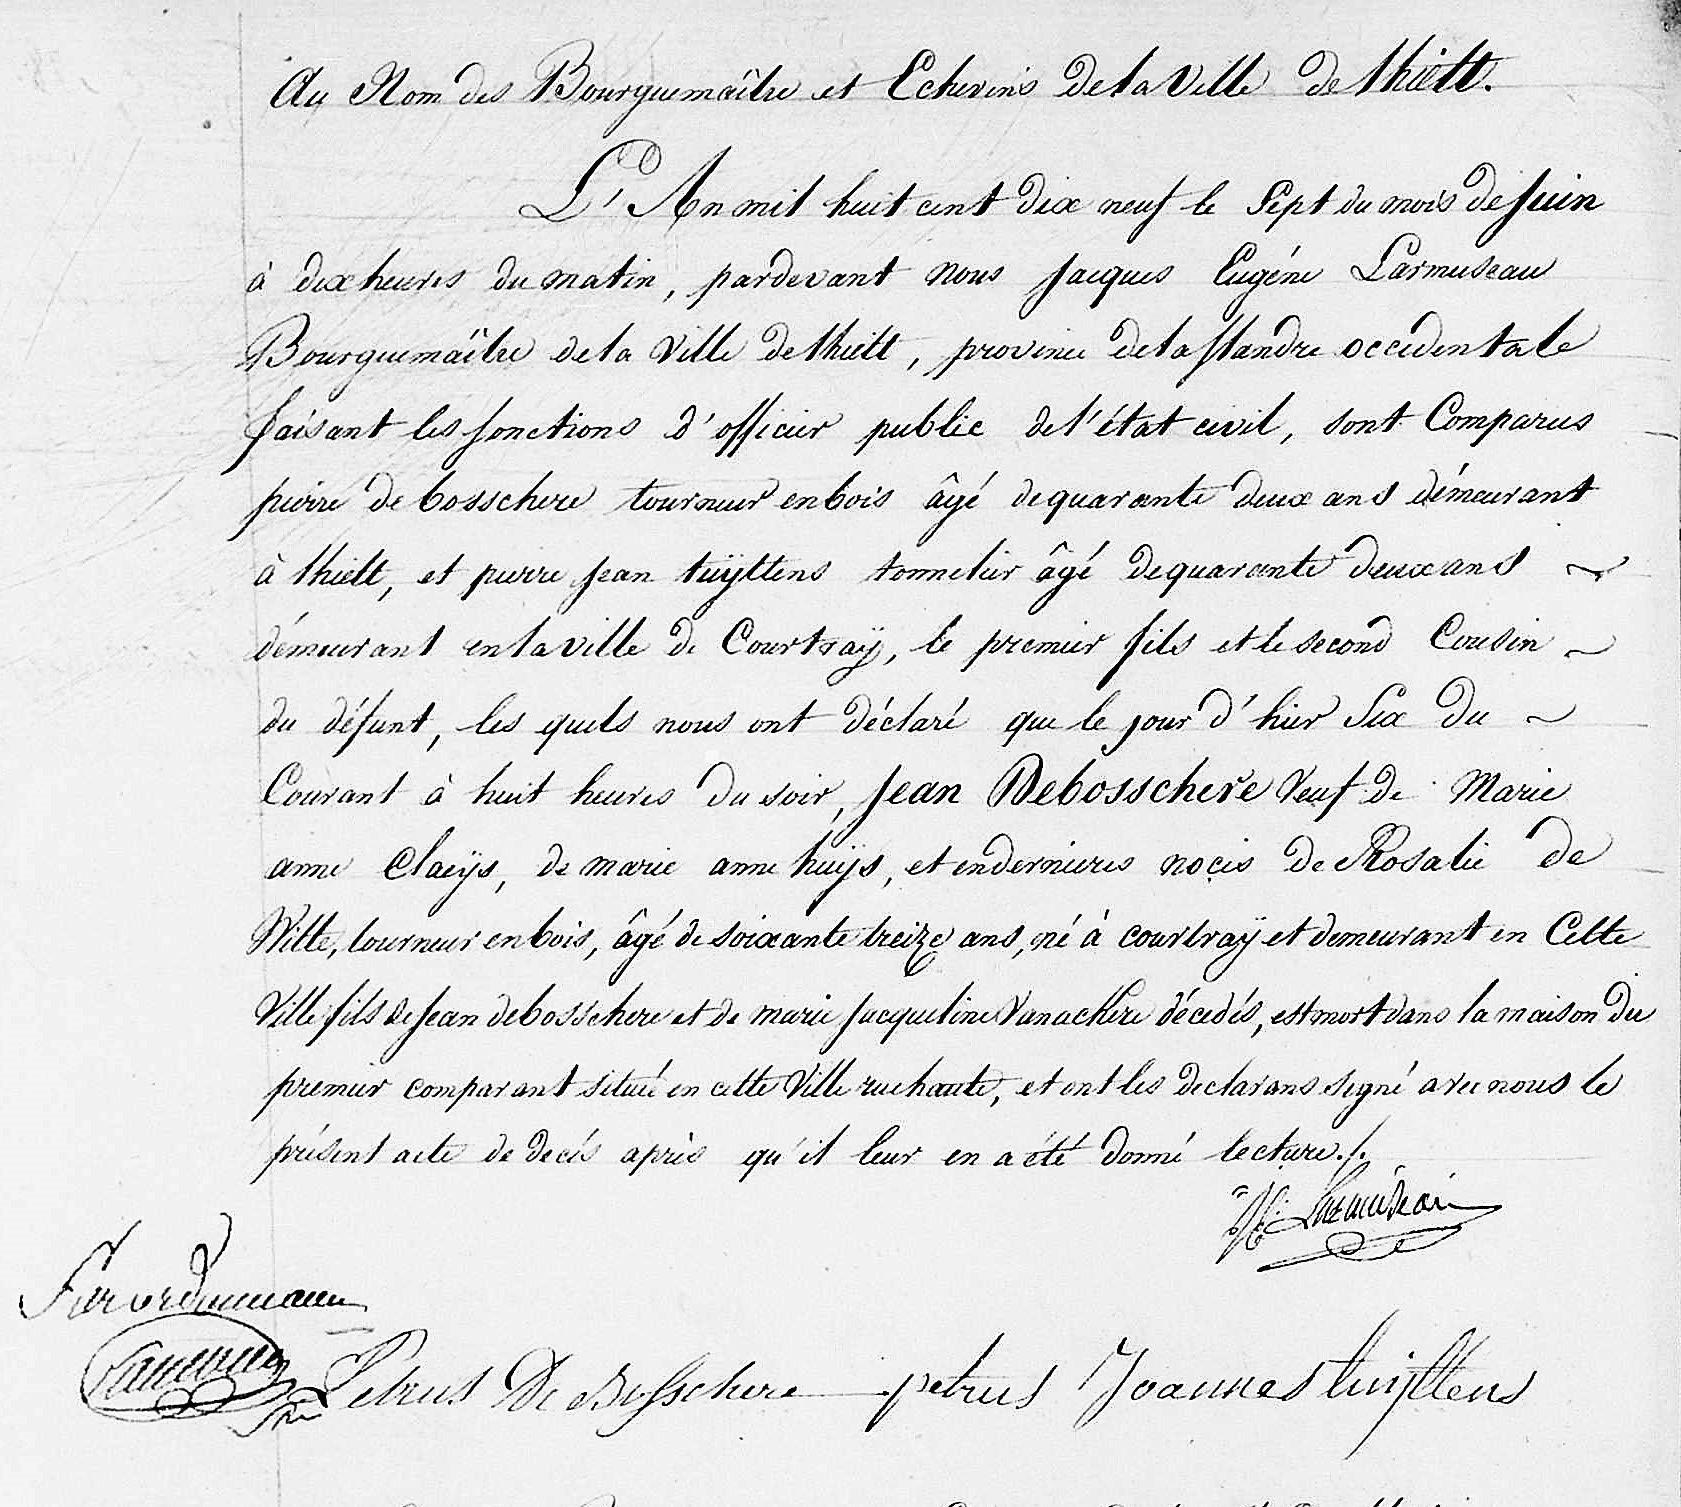 Au Nom des Bourguemaître et Echevins de la Ville de thielt.
L'An mil huit cent dix neuf le Sept du mois de Juin
à dix heures du matin, pardevant nous Jacques Eugéne Larmuseau
Bourguemaître de la Ville de thielt, province de la flandre occidentale
faisant les fonctions d'officier public de l'état civil, sont Comparus
pierre de bosschere tourneur en bois âgé de quarante deux ans démeurant
à thielt, et pierre jean tuÿttens tonnelier âgé de quarante deux ans ~
démeurant en la ville de Courtraÿ, le premier fils et le second Cousin ~
du défunt, les quels nous ont déclaré que le jour d'hier Six du ~
Courant à huit heures du soir, Jean Debosschere Veuf de Marie
anne Claeÿs, de marie anne huÿs, et en dernieres noçes de Rosalie de
Witte, tourneur en bois, âgé de soixante treize ans, né à courtraÿ et demeurant en Cette
Ville fils de Jean debosschere et de marie Jacqueline Vanackere décedés, est mort dans la maison du
premier comparant située en cette Ville rue haute, et ont les declarans signé avec nous le
présent acte de decés après qu'il leur en a été donné lecture./.
Larmuseau
Petrus De Bosschere petrus Joannes tuijttens